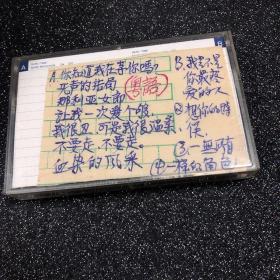 A
B
A.你知道我在等你吗?
无声的结局
粤語
那利亚女郎
让我一次爱个够
我很丑,可是我很温柔
不要走,不要走。
血染的风采
B.我是不是
你最疼
爱的人
②想你的時
候
③一無所有
④一样的角色